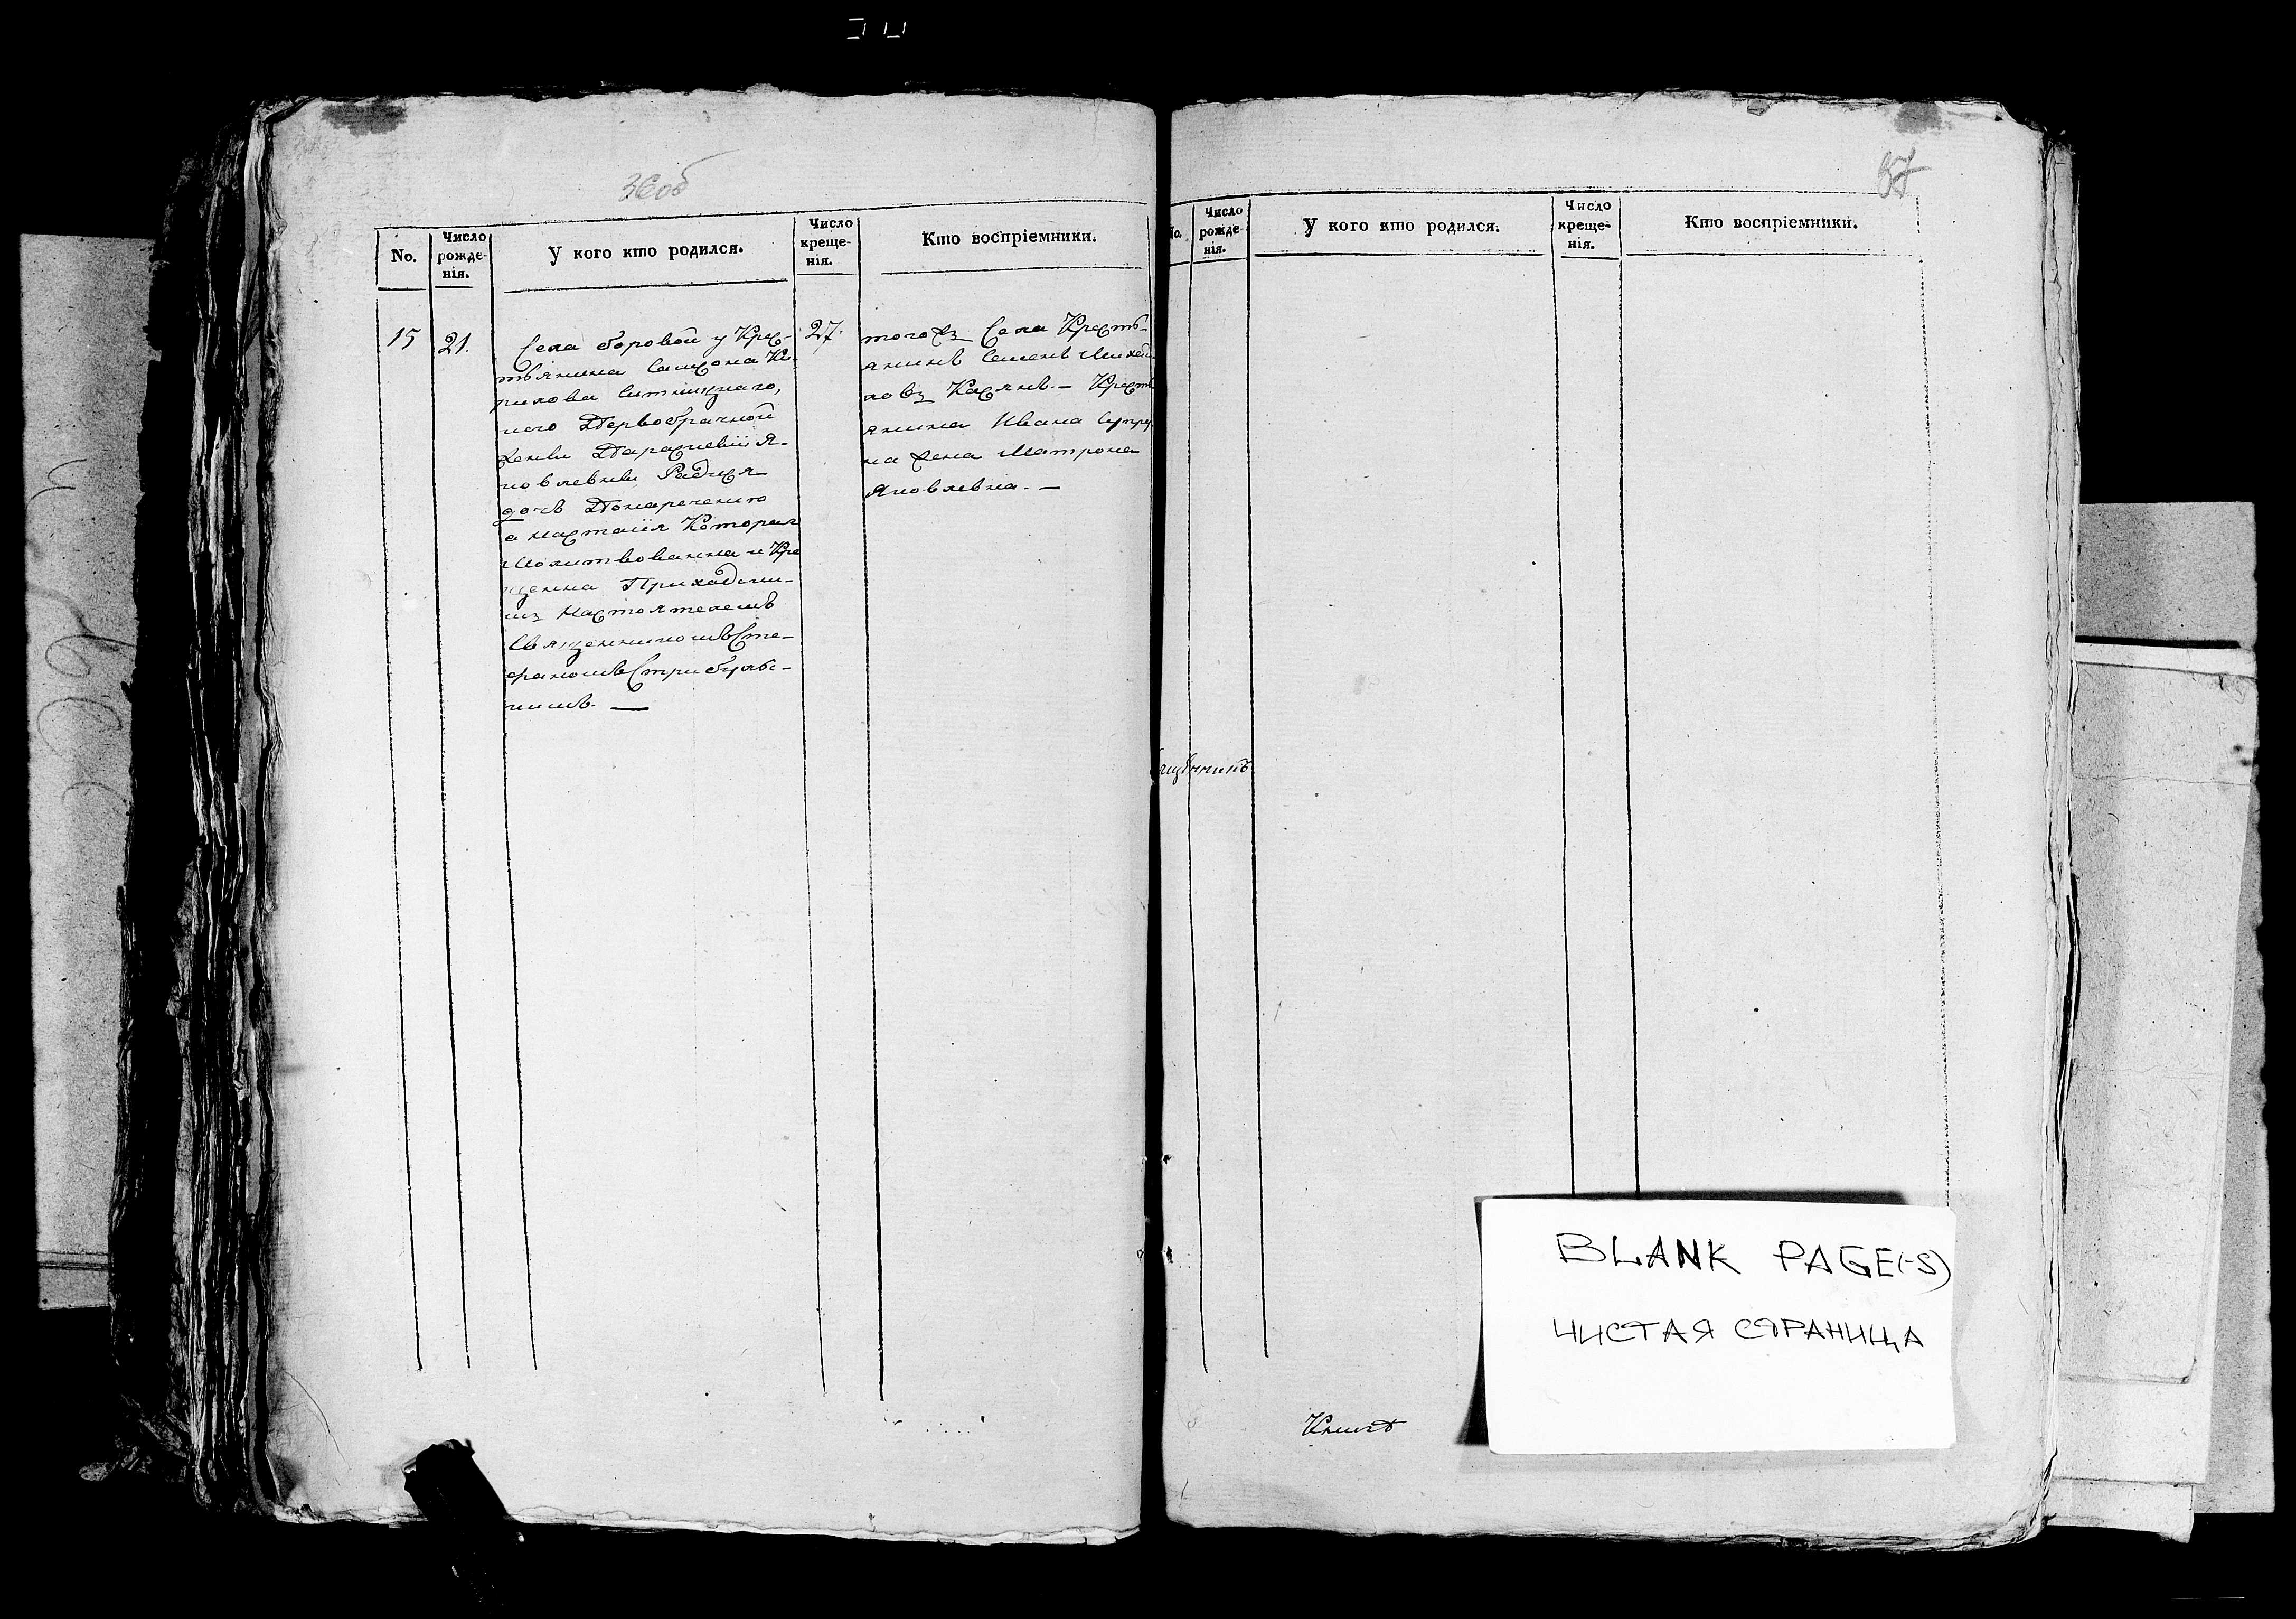 36об
No.
Число рожде-нія.
У кого кто родился.
Число креще-нія.
Кто воспріемники.
15
21.
Села боровой у Крес-
тьянина Самсона Ки-
рилова Ситницкаго,
иего Первобрачной
жены Параскевіи Я-
ковлевны Родися
дочь Понаречению
анастасія Которая
Молитвованна и Кре
щенна Приходски-
мъ Настоятелемъ
Священникомъ Сте-
фаномъ Стрибульс-
кимъ. —
27.
тогожъ Села Кресть-
янинъ Семенъ Михай-
ловъ Касянъ. — Кресть
янина Ивана Супру-
на жена Матрона
Яковлевна. —
37
No.
Число рожде-нія.
У кого кто родился.
Число креще-нія.
Кто воспріемники.
Книгѣ
BLANK PAGE(-S)
ЧИСТАЯ СТРАНИЦА